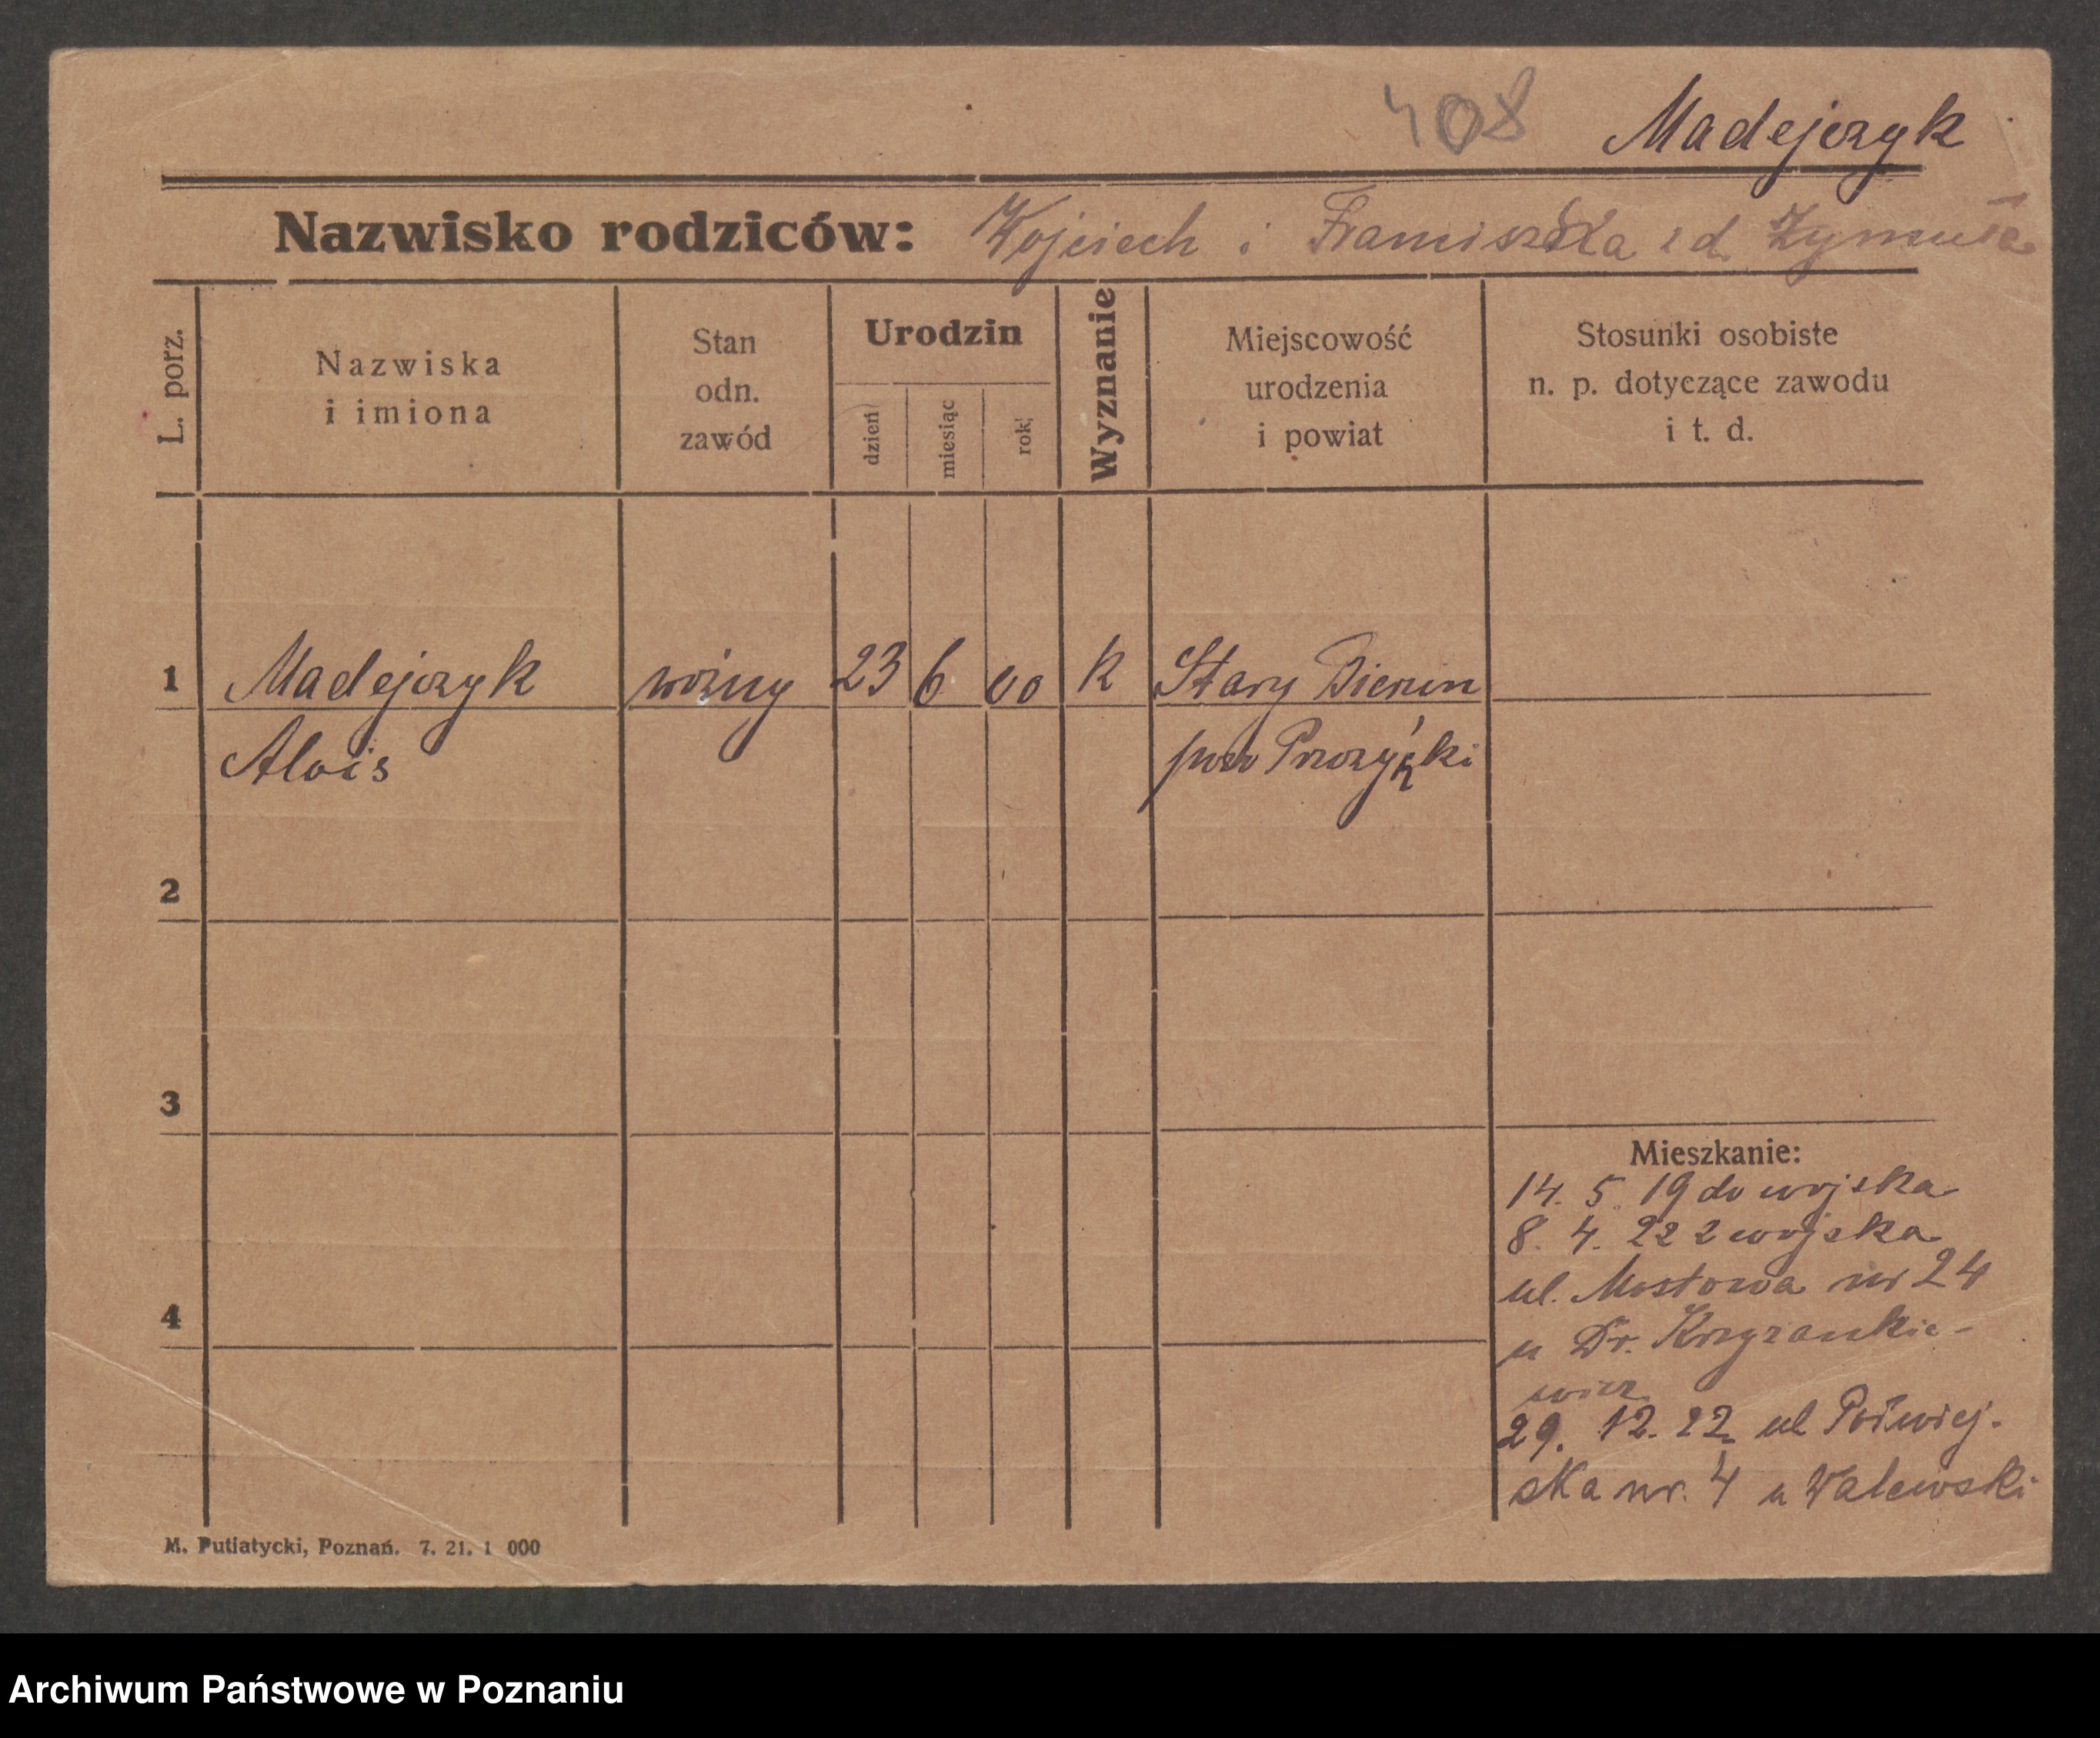 408 Madejczyk
Nazwisko rodziców: Wojciech i Franciszka z d. Zymuła
L. porz.
Nazwiska
i imiona
Stan
odn.
zawód
Urodzin
dzień
miesiąc
rok
Wyznanie
Miejscowość
urodzenia
i powiat
Stosunki osobiste
n. p. dotyczące zawodu
i t. d.
1 Madejczyk woźny 23 6 00 k Stary
Alois pow
2
3
4
Mieszkanie:
14. 5. 19 do wojska
8. 4. 22 z wojska
ul. Mostowa nr 24
u Dr. Krzyzankie-
wicz
29. 12. 22 ul Półwiej-
ska nr. 4 u Walewski
M. Putiatycki, Poznań. 7. 21. 1 000
Archiwum Państwowe w Poznaniu